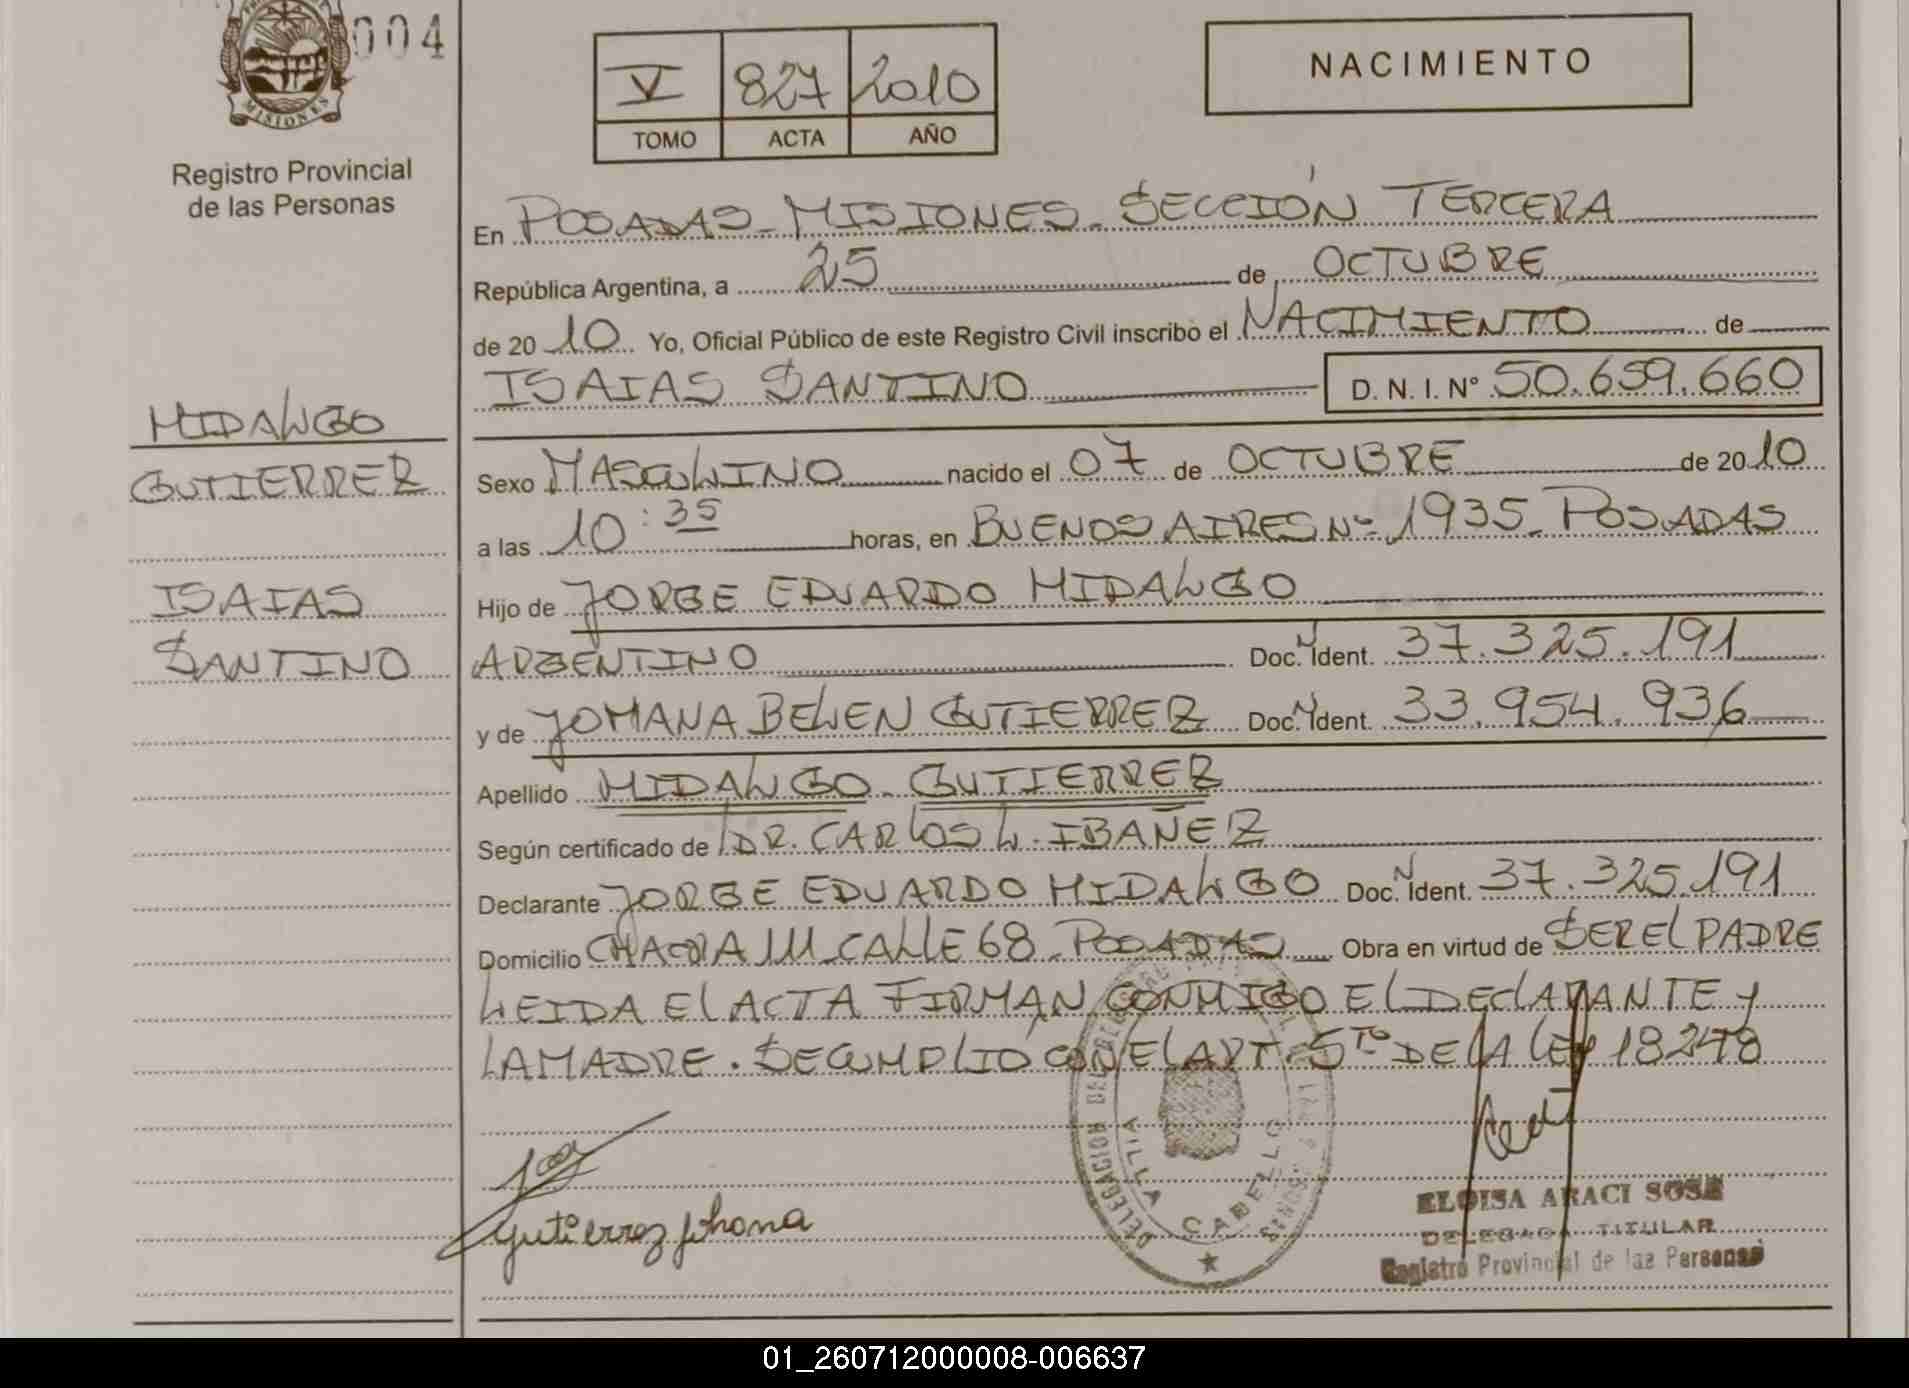 004
MISIONES
Registro Provincial
de las Personas
V 827 2010
TOMO ACTA AÑO
NACIMIENTO
En POSADAS - MISIONES - SECCIÓN TERCERA
República Argentina, a 25 de OCTUBRE
de 2010 Yo, Oficial Público de este Registro Civil inscribo el NACIMIENTO de
ISAIAS SANTINO D. N. I. N° 50.659.660
HIDALGO
GUTIERREZ
ISAIAS
SANTINO
Sexo MASCULINO nacido el 07 de OCTUBRE de 2010
a las 10:35 horas, en BUENOS AIRES Nº 1935 - POSADAS
Hijo de JORGE EDUARDO HIDALGO
ARGENTINO Doc. N Ident. 37.325.191
y de YOHANA BELEN GUTIERREZ Doc. N Ident. 33.954.936
Apellido HIDALGO - GUTIERREZ
Según certificado de DR. CARLOS L. IBAÑEZ
Declarante JORGE EDUARDO HIDALGO Doc. N Ident. 37.325.191
Domicilio CHACRA 111 - CALLE 68 - POSADAS Obra en virtud de SER EL PADRE
LEIDA EL ACTA FIRMAN CONMIGO EL DECLARANTE y
LA MADRE. SE CUMPLIÓ CON EL ART. 5TO DE LA LEY 18248
Gutierrez Johana
DELEGACION
VILLA CABELLO
ELOISA ARACI SOSA
DELEGADA TITULAR
Registro Provincial de las Personas
01_260712000008-006637